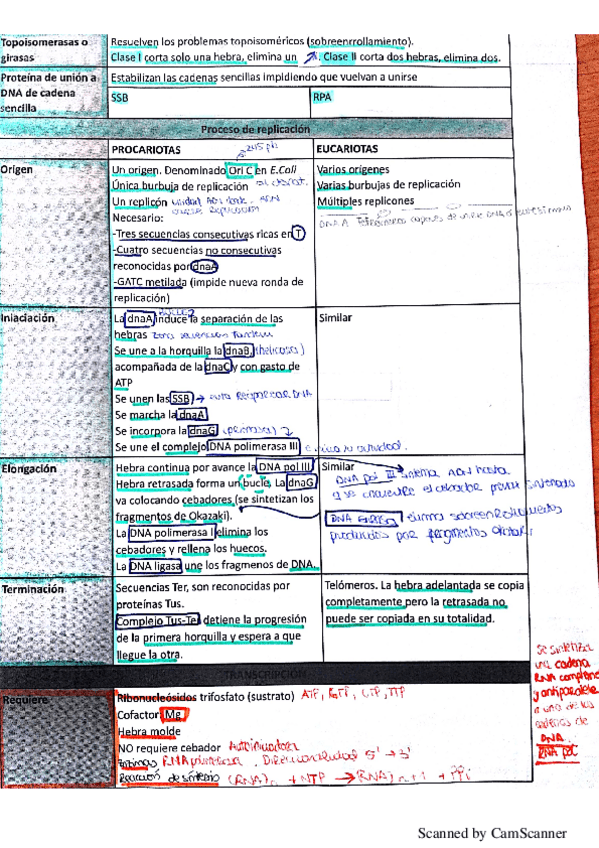 Topoisomerasas o girasas
Resuelven los problemas topoisoméricos (sobreenrrollamiento).
Clase I corta solo una hebra, elimina un . Clase II corta dos hebras, elimina dos.
Proteína de unión a DNA de cadena sencilla
Estabilizan las cadenas sencillas impidiendo que vuelvan a unirse
SSB
RPA
Proceso de replicación
PROCARIOTAS
245 pb
EUCARIOTAS
Origen
Un origen. Denominado Ori C en E.Coli
Única burbuja de replicación
Un replicón
Necesario:
-Tres secuencias consecutivas ricas en T
-Cuatro secuencias no consecutivas
reconocidas por dnaA
-GATC metilada (impide nueva ronda de
replicación)
Varios orígenes
Varias burbujas de replicación
Múltiples replicones
Iniaciación
La dnaA induce la separación de las
hebras
Se une a la horquilla la dnaB (helicasa)
acompañada de la dnaC y con gasto de
ATP
Se unen las SSB →
Se marcha la dnaA
Se incorpora la dnaG (primasa)
Se une el complejo DNA polimerasa III
Similar
Elongación
Hebra continua por avance la DNA pol III
Hebra retrasada forma un bucle. La dnaG
va colocando cebadores (se sintetizan los
fragmentos de Okazaki).
La DNA polimerasa I elimina los
cebadores y rellena los huecos.
La DNA ligasa une los fragmenos de DNA.
Similar
DNA pol III
producidos por fragmentos
Terminación
Secuencias Ter, son reconocidas por
proteínas Tus.
Complejo Tus-Ter detiene la progresión
de la primera horquilla y espera a que
llegue la otra.
Telómeros. La hebra adelantada se copia
completamente pero la retrasada no
puede ser copiada en su totalidad.
TRANSCRIPCIÓN
Requiere
Ribonucleósidos trifosfato (sustrato)
Cofactor Mg
Hebra molde
NO requiere cebador
Enzimas RNA polimerasa. Direccionalidad 5' → 3'
Reacción de síntesis (RNA)n + NTP → (RNA)n+1 + PPi
Se sintetiza
una cadena
RNA
y antiparalela
a una de las
cadenas de
DNA.
RNA pol
Scanned by CamScanner